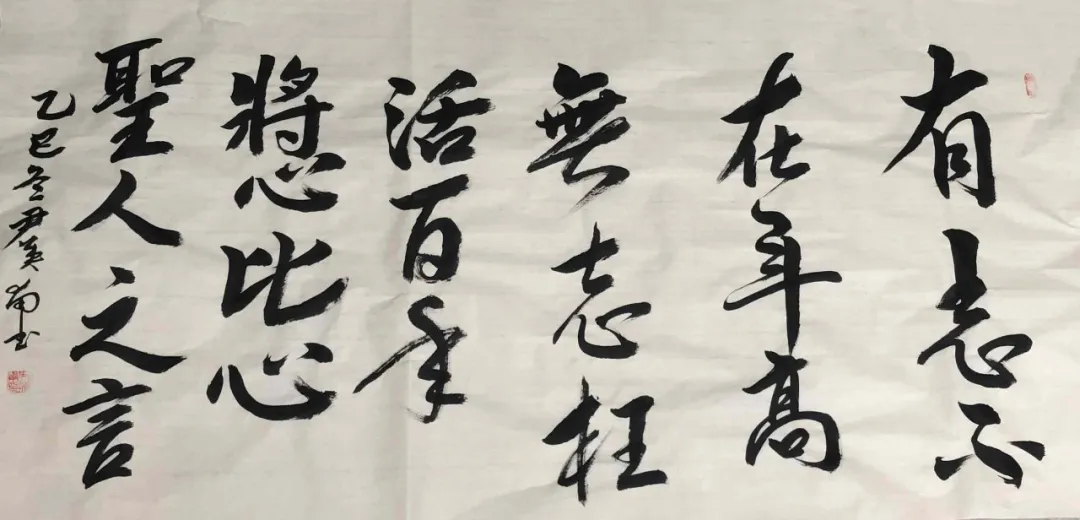 有志不
在年高
無志枉
活百年
將心比心
聖人之言
乙巳冬尹英菊書